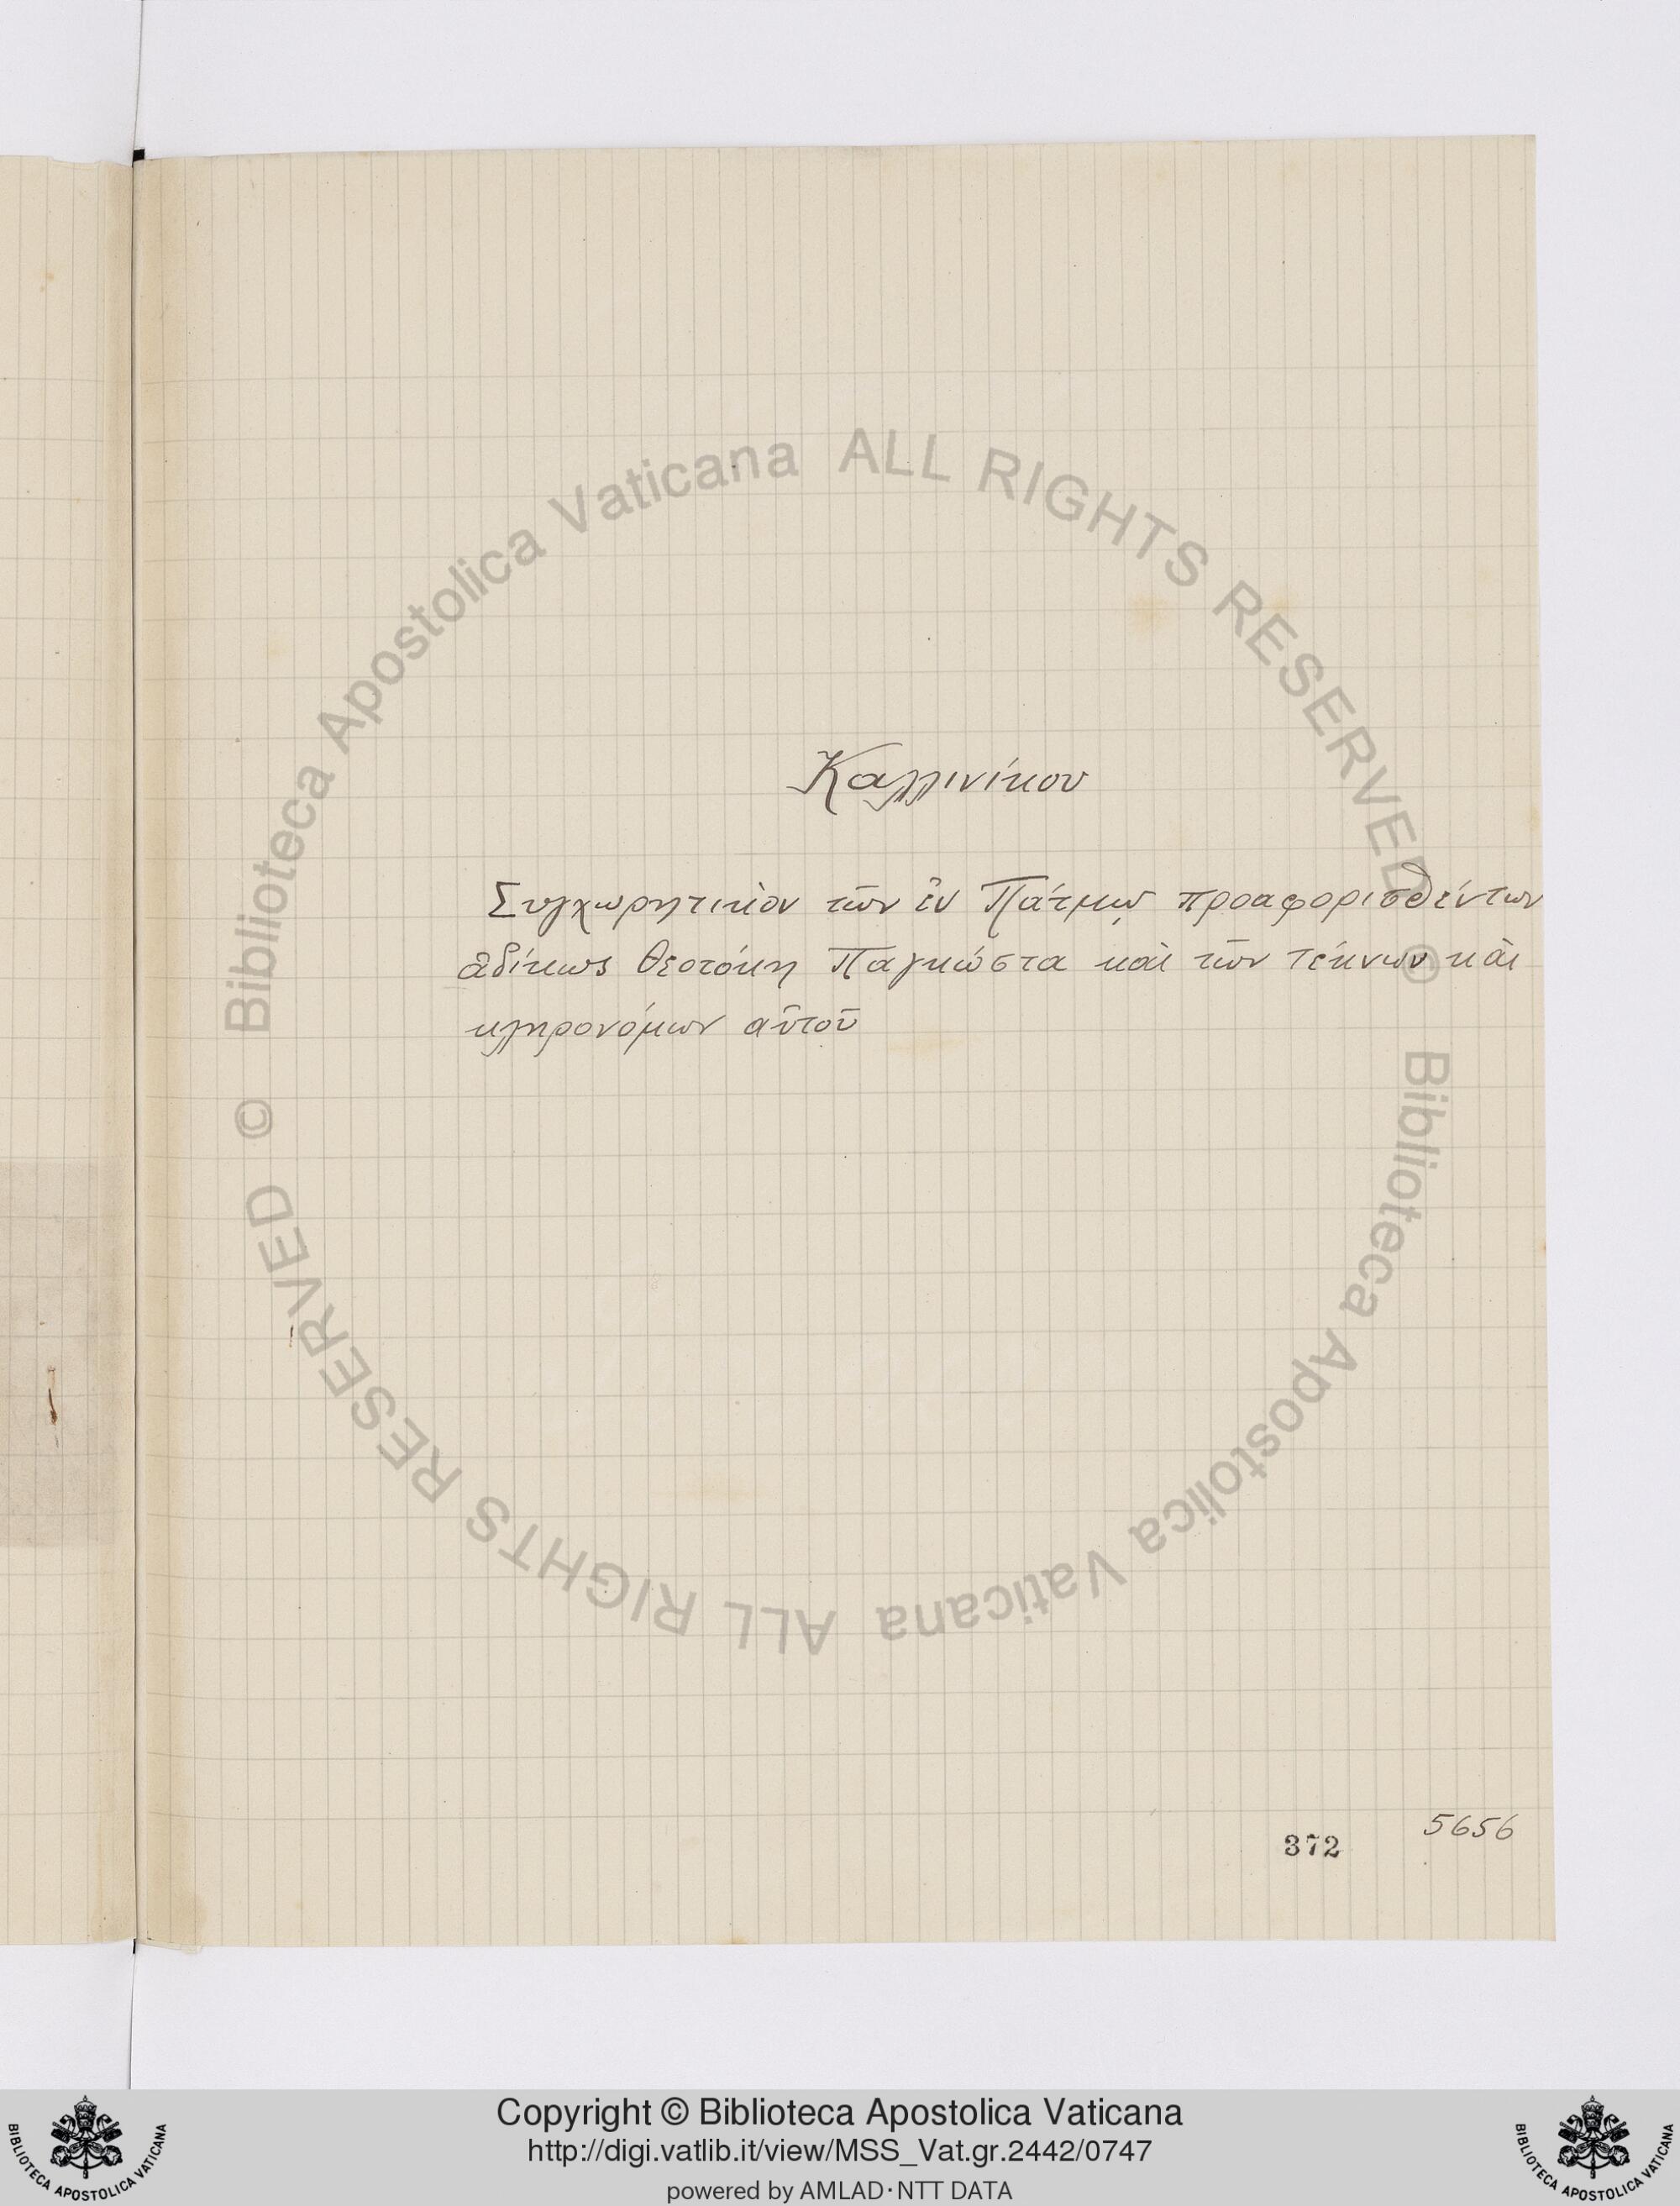 Καλλινίκου
Συγχωρητικὸν τῶν ἐν Πάτμῳ προαφορισθέντων
ἀδίκως Θεοτόκη Παγκώστα καὶ τῶν τέκνων καὶ
κληρονόμων αὐτοῦ
5656
372
Biblioteca Apostolica Vaticana ALL RIGHTS RESERVED ©
Biblioteca Apostolica Vaticana ALL RIGHTS RESERVED ©
Copyright © Biblioteca Apostolica Vaticana
http://digi.vatlib.it/view/MSS_Vat.gr.2442/0747
powered by AMLAD·NTT DATA
BIBLIOTECA APOSTOLICA VATICANA
BIBLIOTECA APOSTOLICA VATICANA